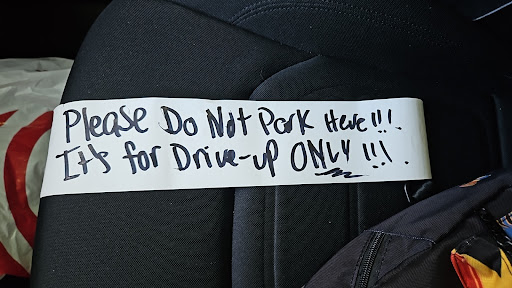 Please Do Not Park Here!!!
It's for Drive-up ONLY!!!